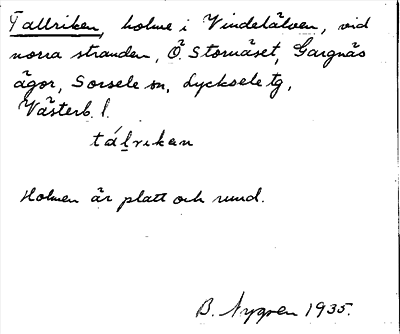 Tallriken, holme i Vindelälven, vid
norra stranden, Ö. Stornäset, Gargnäs
ägor, Sorsele sn, Lycksele tg,
Västerb. l.
tálriken
Holmen är platt och rund.
B. Nygren 1935.